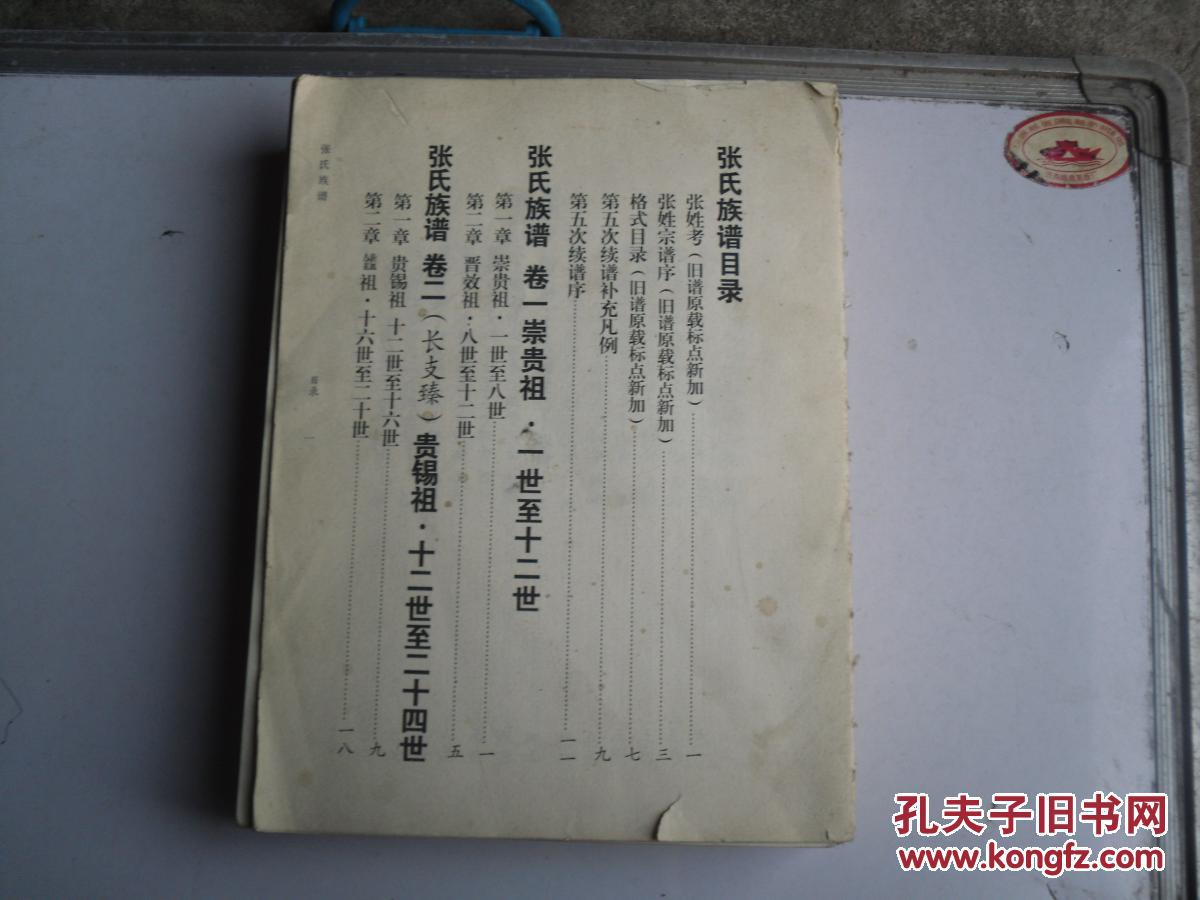 张氏族谱目录
张姓考（旧谱原载标点新加）……一
张姓宗谱序（旧谱原载标点新加）……三
格式目录（旧谱原载标点新加）……七
第五次续谱补充凡例……九
第五次续谱序……一一
张氏族谱 卷一 崇贵祖·一世至十二世
第一章 崇贵祖·一世至八世……一
第二章 晋效祖·八世至十二世……五
张氏族谱 卷二（长支臻）贵锡祖·十二世至二十四世
第一章 贵锡祖 十二世至十六世……九
第二章 祖·十六世至二十世……一八
张氏族谱
目录
一
孔夫子旧书网
www.kongfz.com